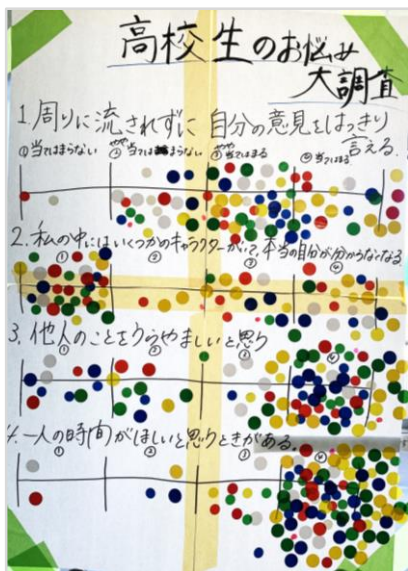 高校生のお悩み
大調査
1. 周りに流されずに自分の意見をはっきり
言える.
①当てはまらない ②やや当てはまらない ③やや当てはまる ④当てはまる
2. 私の中にはいくつかのキャラクターがいて、本当の自分が分からなくなる
① ② ③ ④
3. 他人のことをうらやましいと思う
① ② ③ ④
4. 一人の時間がほしいと思うときがある.
① ② ③ ④